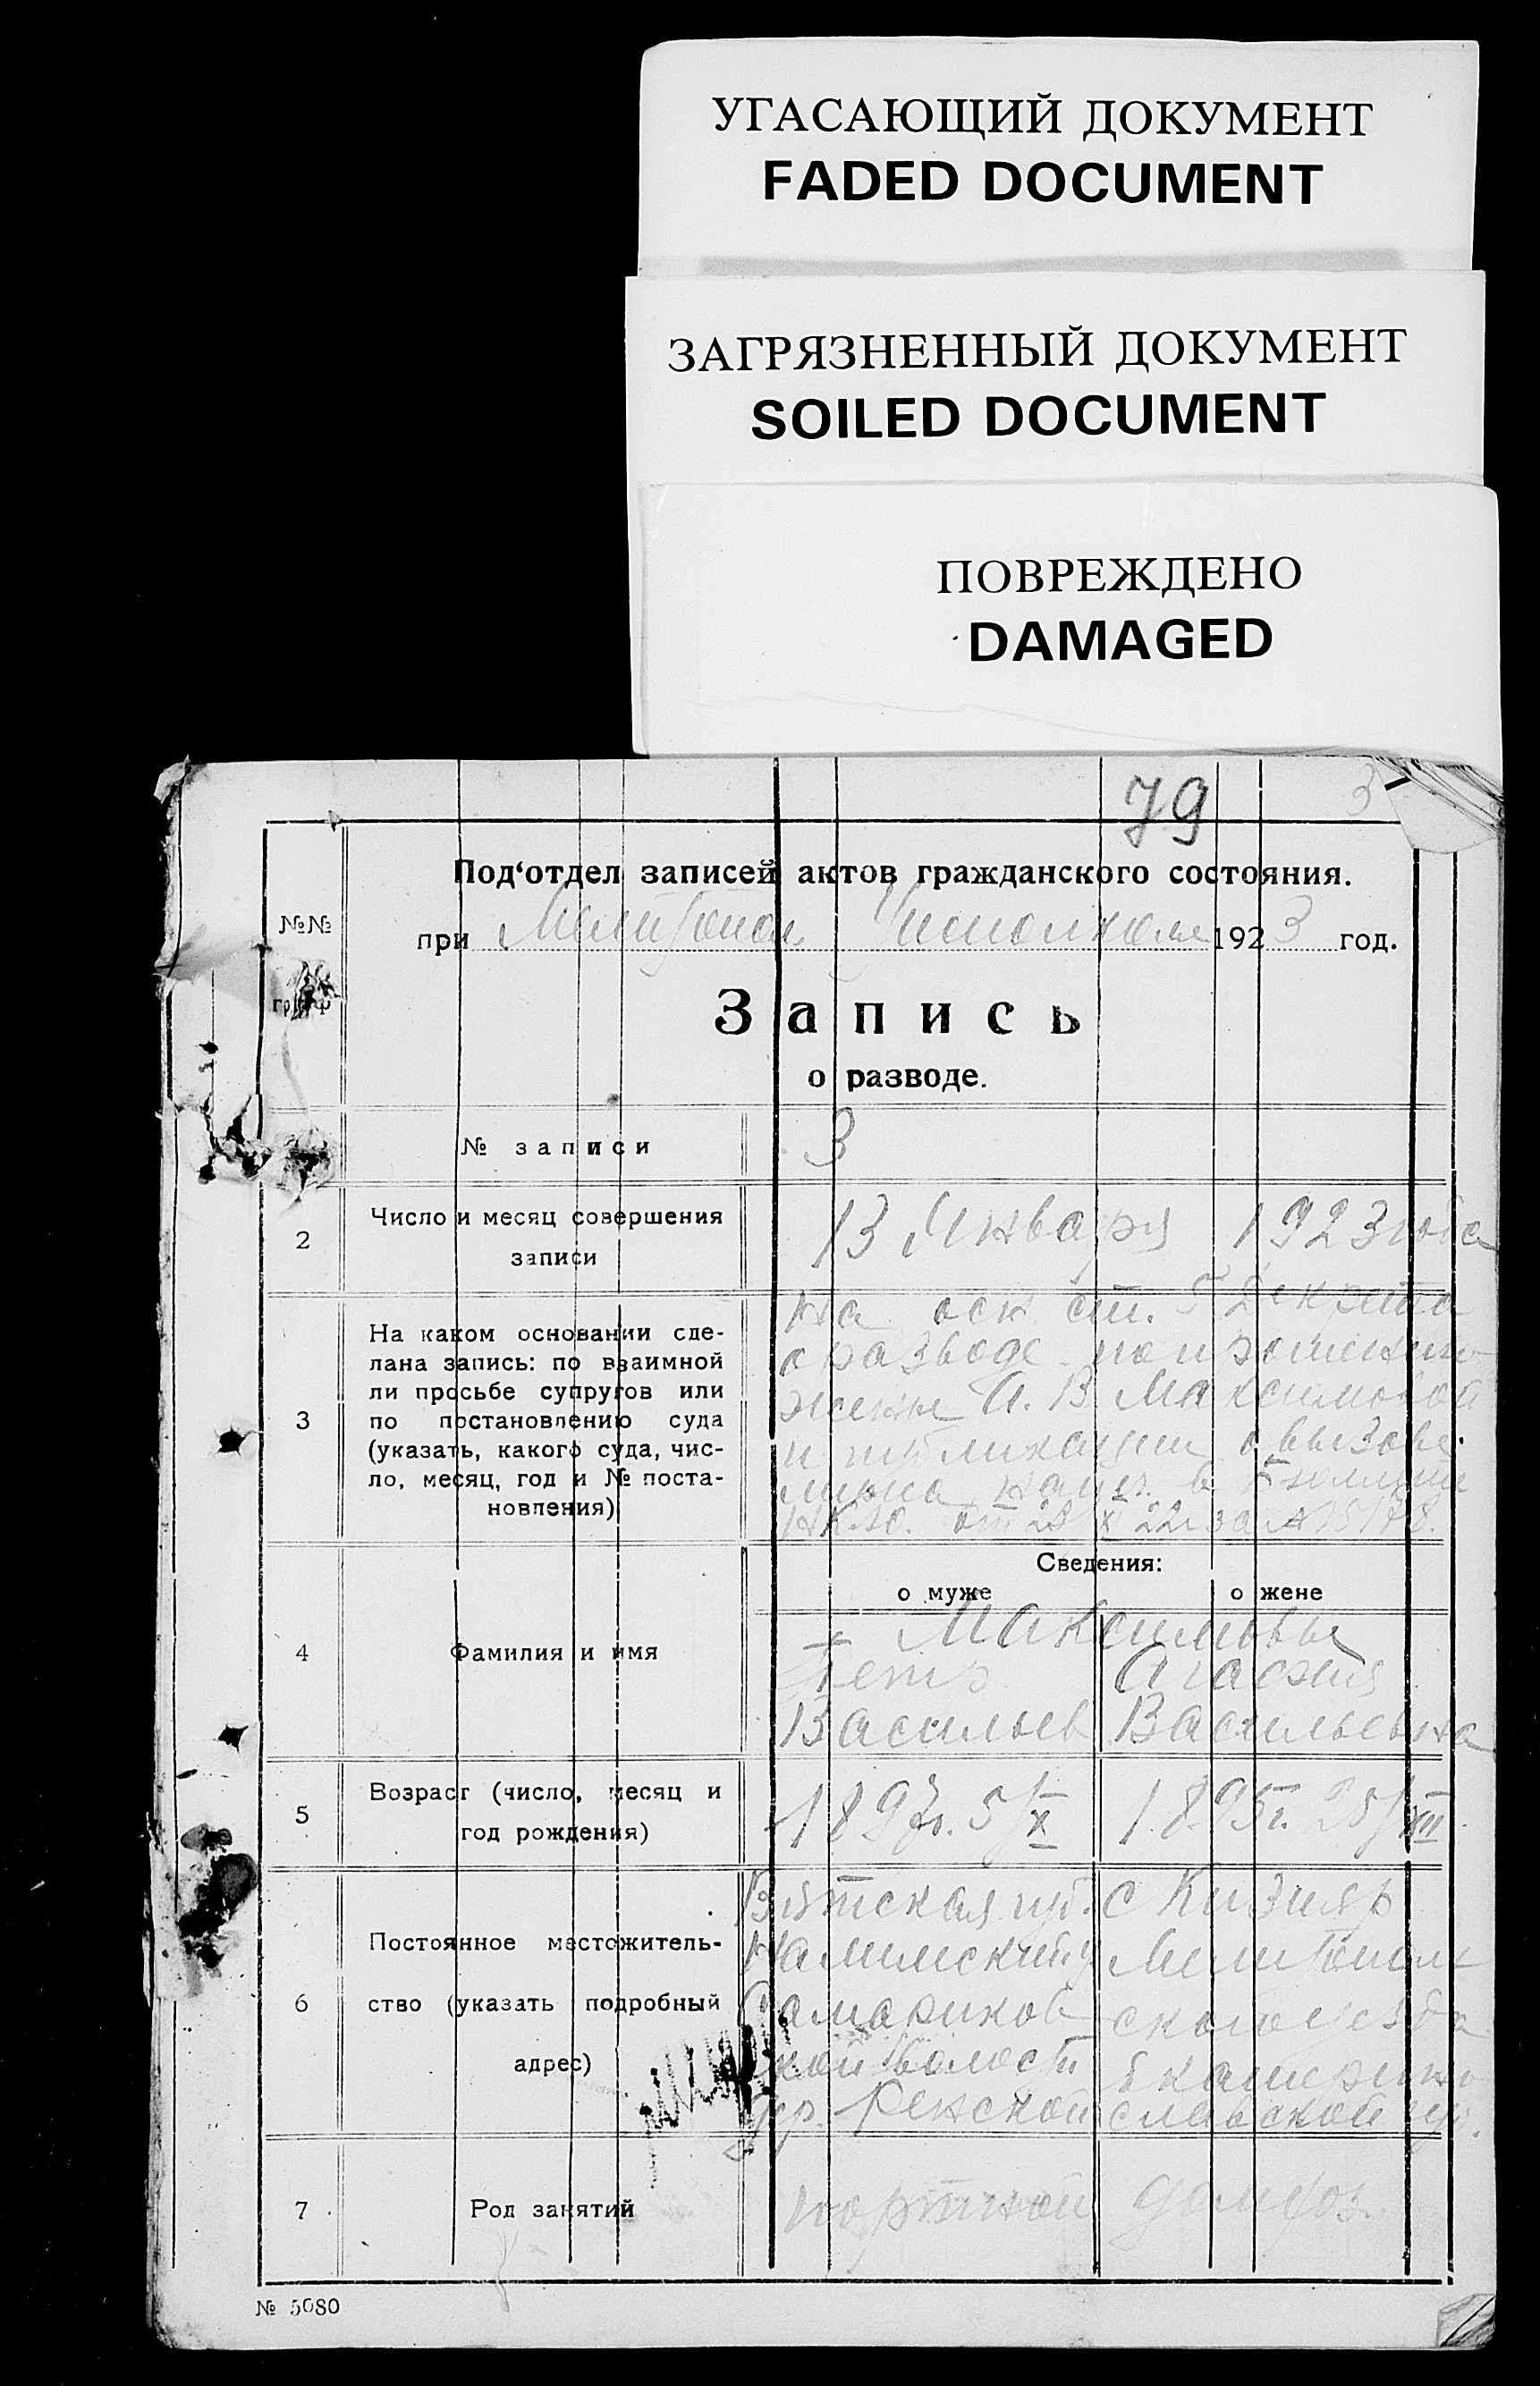 УГАСАЮЩИЙ ДОКУМЕНТ
FADED DOCUMENT
ЗАГРЯЗНЕННЫЙ ДОКУМЕНТ
SOILED DOCUMENT
ПОВРЕЖДЕНО
DAMAGED
79 3
№№
граф
Под‘отдел записей актов гражданского состояния.
при Мелитопол. Исполкоме 1923 год.
Запись
о разводе.
№ записи
3
2
Число и месяц совершения
записи
13 Января 1923 года
3
На каком основании сде-
лана запись: по взаимной
ли просьбе супругов или
по постановлению суда
(указать, какого суда, чис-
ло, месяц, год и № поста-
новления)
На осн ст. 5 Декрета
о разводе по прошению
жены А. В. Максимовой
и публикации о вызове
мужа напеч. в
от 23 X 22 г за №
Сведения:
о муже о жене
4
Фамилия и имя
Максимовы
Петр Агафия
Васильев Васильевна
5
Возраст (число, месяц и
год рождения)
1897г. 5/X 1895г. 25/XII
6
Постоянное местожитель-
ство (указать подробный
адрес)
Вятская губ. с Кизияр
Мелитополь
ского уезда
ской волости Екатерино
дер. славской губ.
7
Род занятий
портной домхоз.
№ 5080